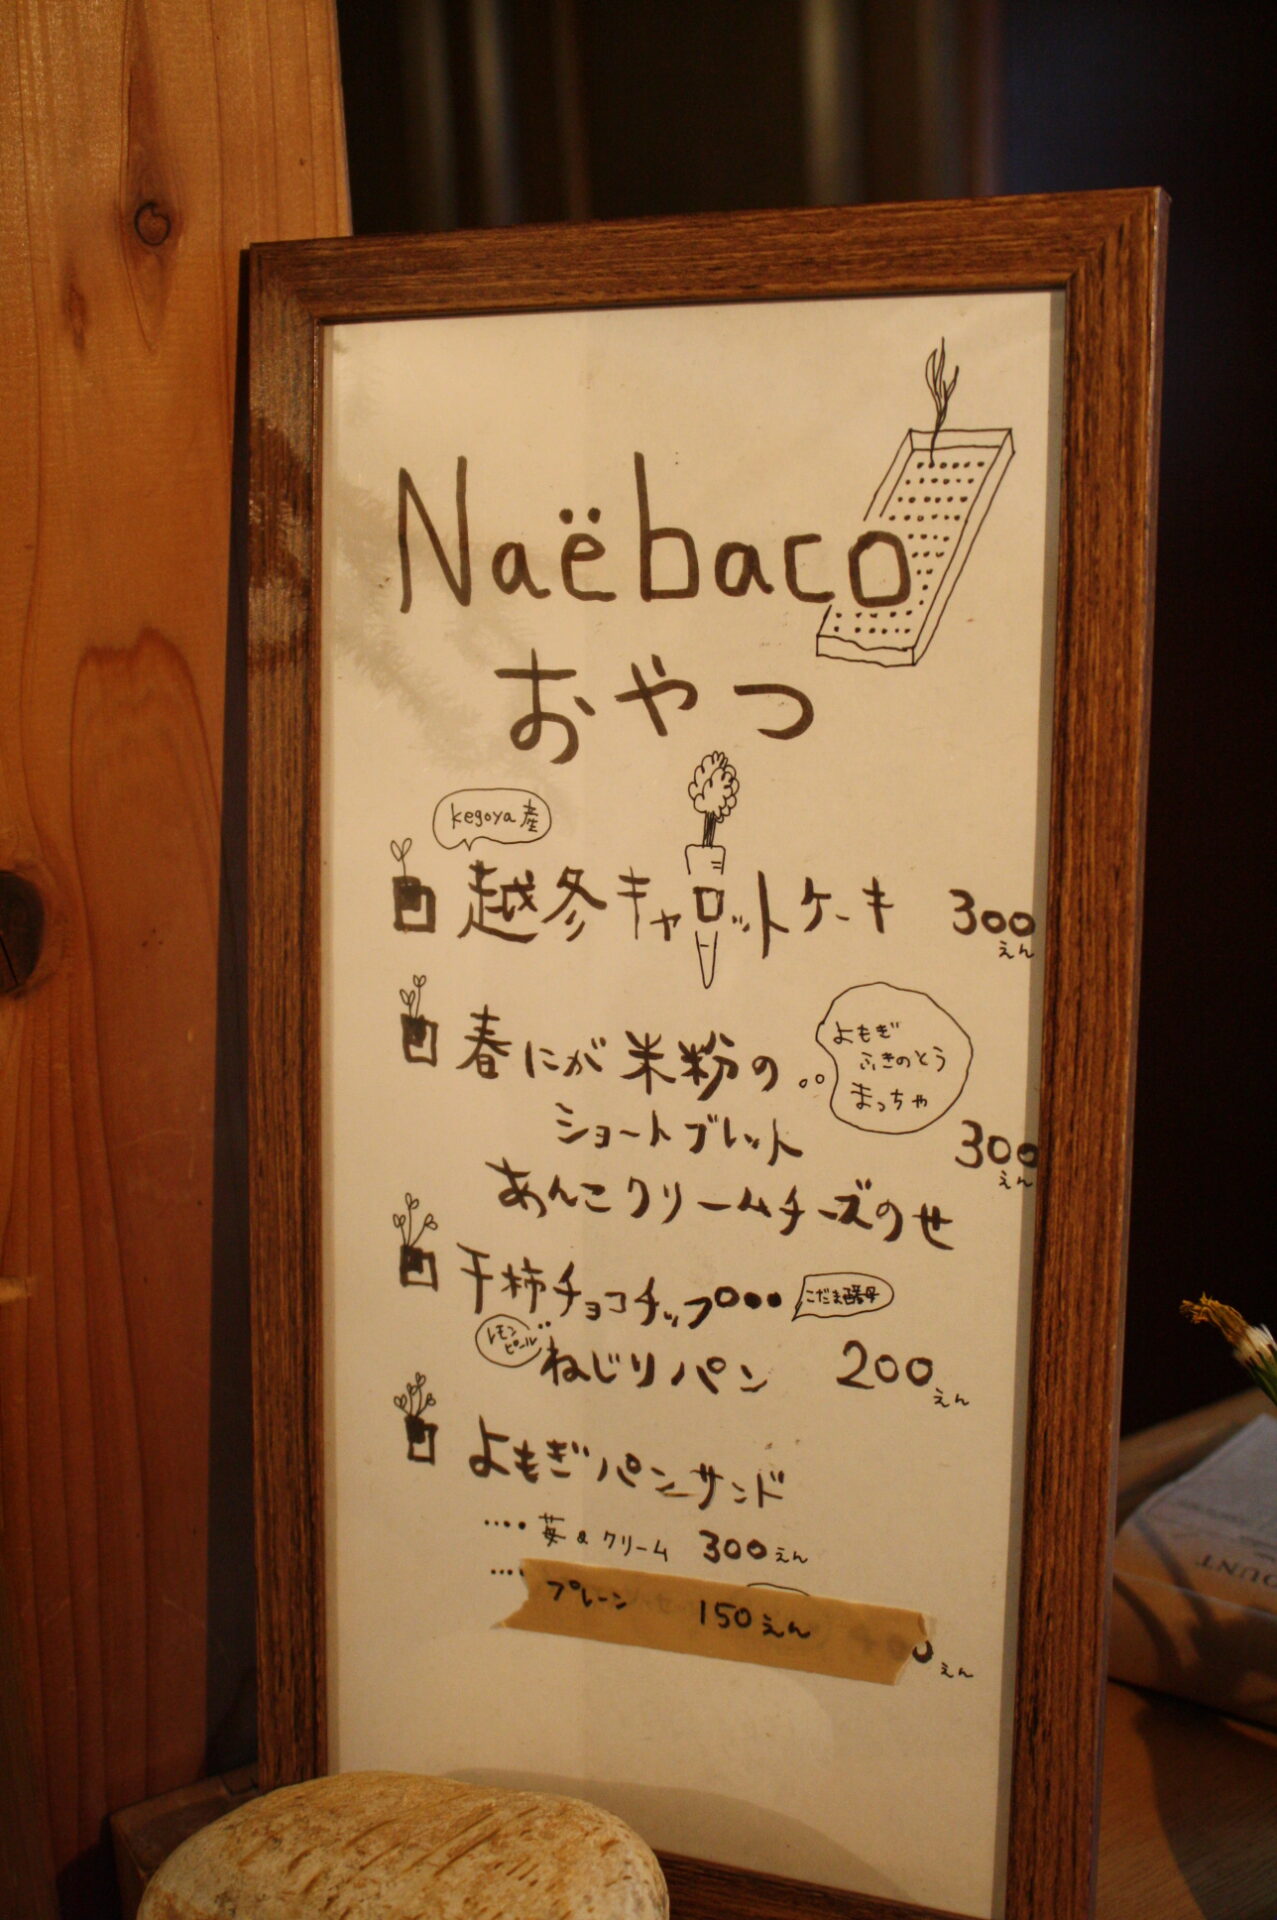 Naëbaco
おやつ
kegoya産
越冬キャロットケーキ 300えん
春にが米粉の
よもぎ
ふきのとう
まっちゃ
ショートブレット
300えん
あんこクリームチーズのせ
干柿チョコチップ
こだま酵母
レモン
ピール
ねじりパン 200えん
よもぎパンサンド
.... 苺&クリーム 300えん
.... プレーン 150えん
えん
OUNT